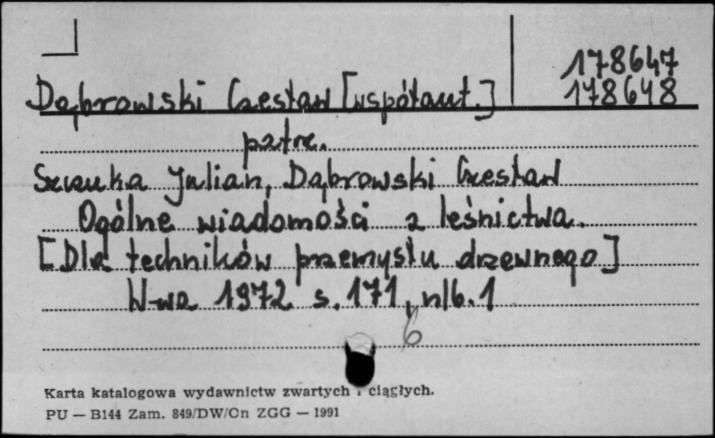 178647
Dąbrowski Czesław [współaut.] 178648
patrz.
Szczuka Julian, Dąbrowski Czesław
Ogólne wiadomości z leśnictwa.
[Dla techników przemysłu drzewnego]
W-wa 1972 s. 171, nlb. 1
6
Karta katalogowa wydawnictw zwartych i ciągłych.
PU — B144 Zam. 849/DW/Cn ZGG — 1991